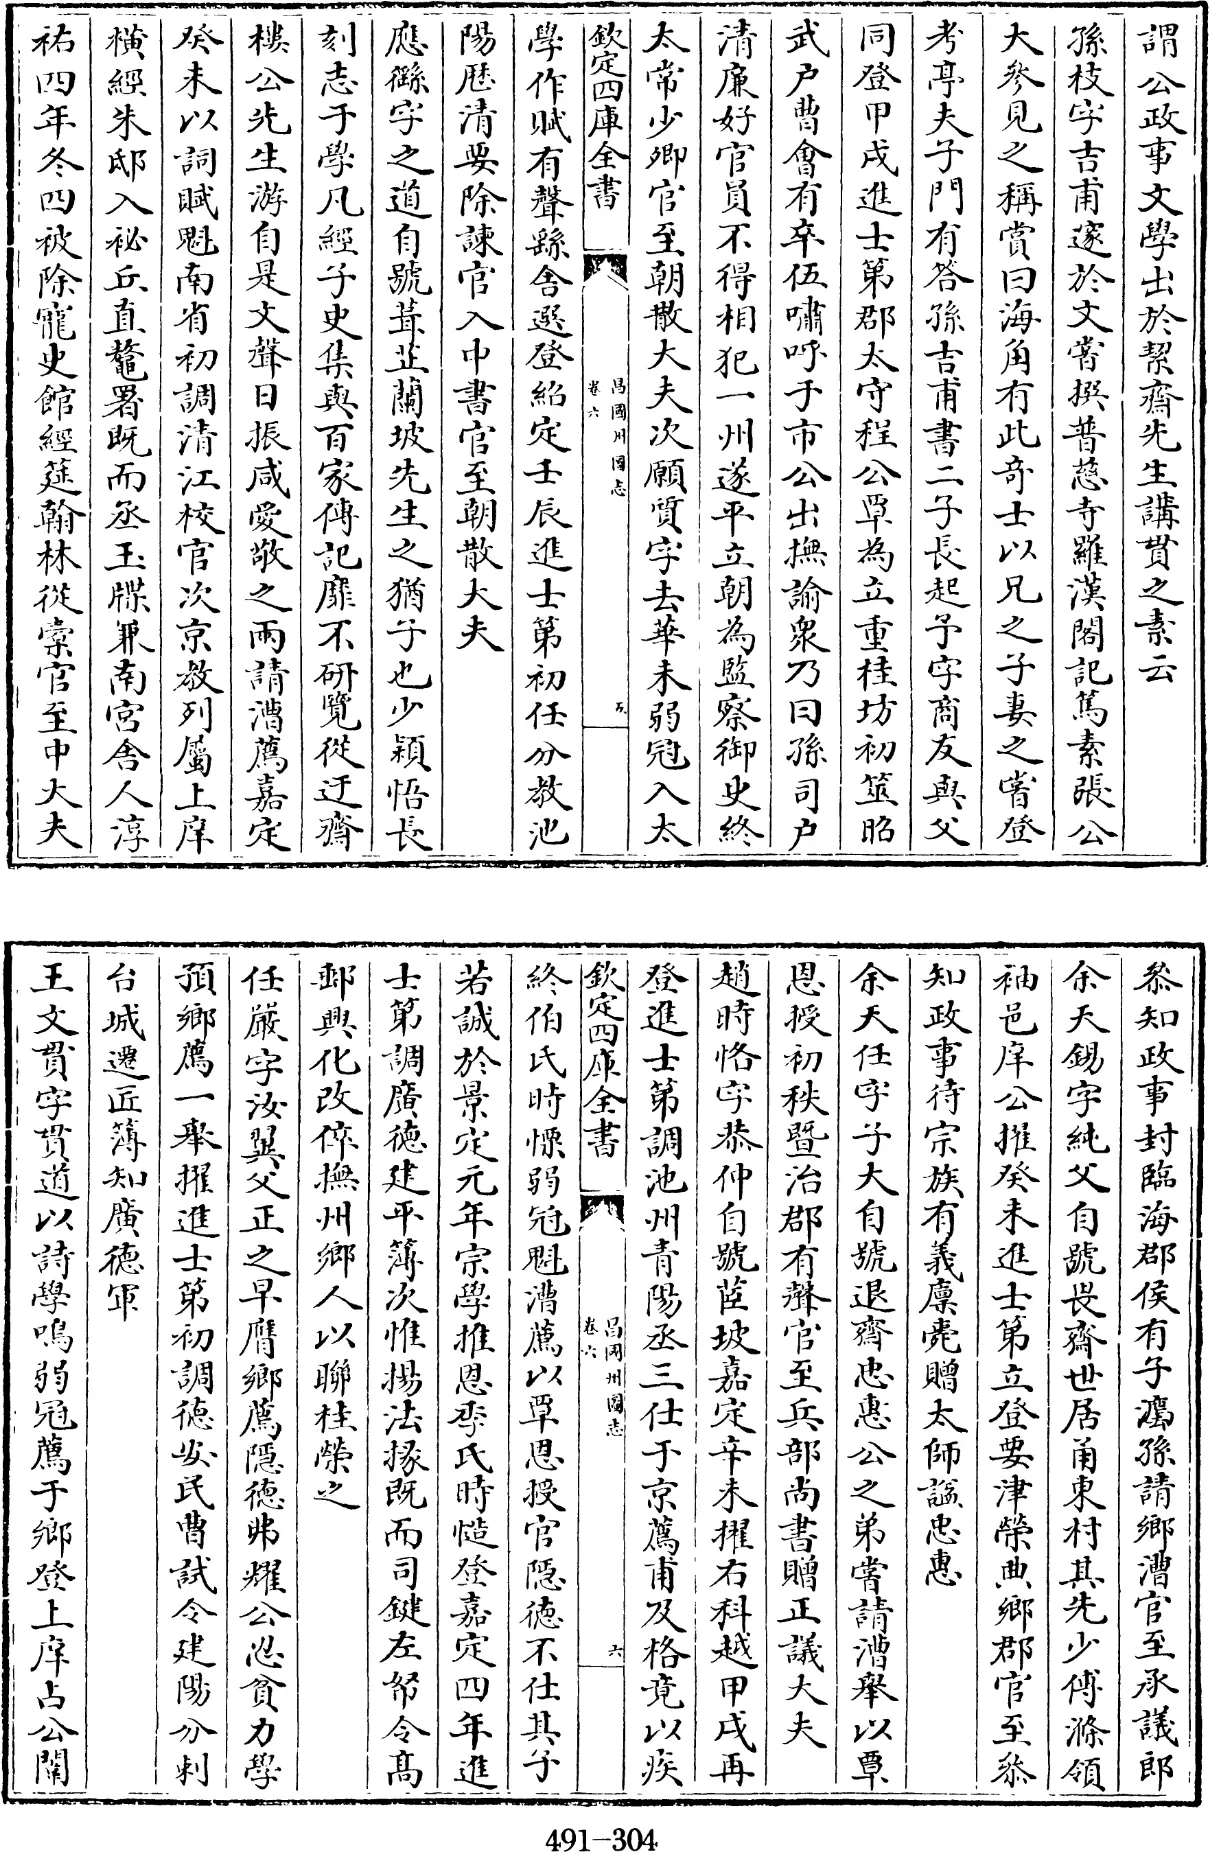 謂公政事文學出於絜齋先生講貫之素云
孫枝字吉甫邃於文嘗撰普慈寺羅漢閣記篤素張公
大參見之稱賞曰海角有此奇士以兄之子妻之嘗登
考亭夫子門有答孫吉甫書二子長起予字商友與父
同登甲戌進士第郡太守程公覃為立重桂坊初筮昭
武戶曹會有卒伍嘯呼于市公出撫諭衆乃曰孫司戶
清廉好官員不得相犯一州遂平立朝為監察御史終
太常少卿官至朝散大夫次願質字去華未弱冠入太
欽定四庫全書
昌國州圖志
卷六
五
學作賦有聲縣舍選登紹定壬辰進士第初任分教池
陽歷清要除諫官入中書官至朝散大夫
應𦅸字之道自號葺芷蘭坡先生之猶子也少穎悟長
刻志于學凡經子史集與百家傳記靡不研覽從迂齋
樓公先生游自是文聲日振咸愛敬之兩請漕薦嘉定
癸未以詞賦魁南省初調清江校官次京教列屬上庠
橫經朱邸入祕丘直鼇署既而丞玉牒兼南宮舍人淳
祐四年冬四被除寵史館經筵翰林從橐官至中大夫
叅知政事封臨海郡侯有子㵾孫請鄉漕官至承議郎
余天錫字純父自號畏齋世居甬東村其先少傅滌領
袖邑庠公擢癸未進士第立登要津榮典鄉郡官至叅
知政事待宗族有義廩薨贈太師諡忠惠
余天任字子大自號退齋忠惠公之弟嘗請漕舉以覃
恩授初秩暨治郡有聲官至兵部尚書贈正議大夫
趙時恪字恭仲自號茝坡嘉定辛未擢右科越甲戌再
登進士第調池州青陽丞三仕于京薦甫及格竟以疾
欽定四庫全書
昌國州圖志
卷六
六
終伯氏時慄弱冠魁漕薦以覃恩授官隱德不仕其子
若誠於景定元年宗學推恩季氏時慥登嘉定四年進
士第調廣德建平簿次惟揚法掾既而司鍵左帑令高
郵興化改倅撫州鄉人以聯桂榮之
任嚴字汝翼父正之早膺鄉薦隱德弗耀公忍貧力學
預鄉薦一舉擢進士第初調德安民曹試令建陽分刺
台城遷匠簿知廣德軍
王文貫字貫道以詩學鳴弱冠薦于鄉登上庠占公闈
491-304